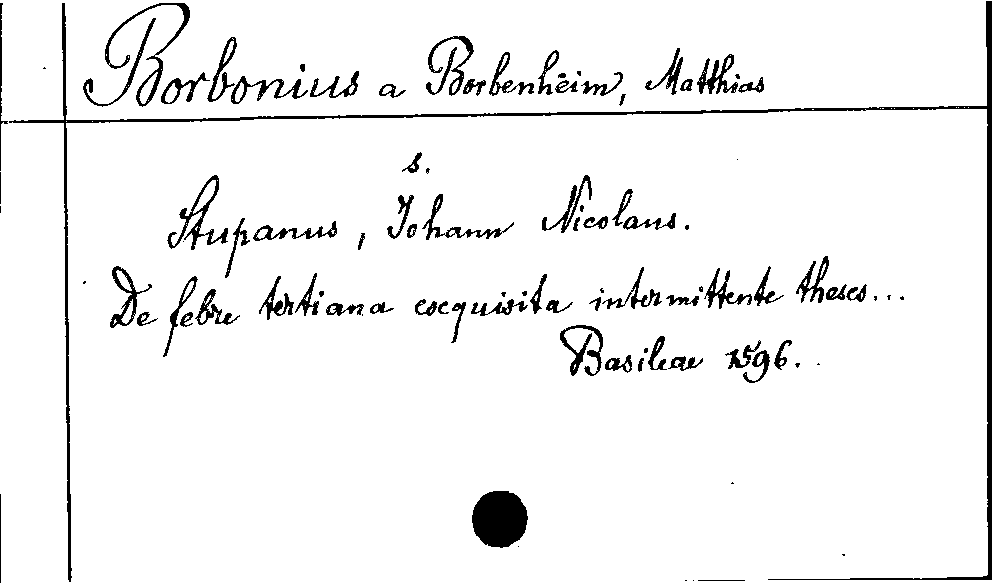 Borbonius a Borbenheim, Matthias
s.
Stupanus, Johann Nicolaus.
De febre tertiana excquisita intermittente theses...
Basileae 1596.